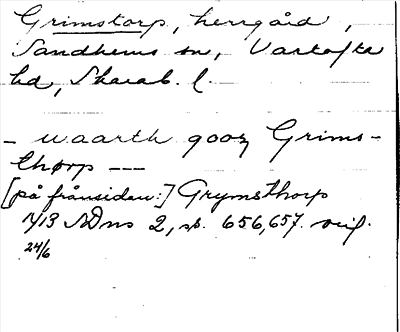 Grimstorp, herrgård,
Sandhems sn, Vartofta
hd, Skarab. l.
- waarth gooz Grims-
thørp ---
[på frånsidan:] Grymsthorp
1413 SDns 2, s. 656, 657. orig.
24/6